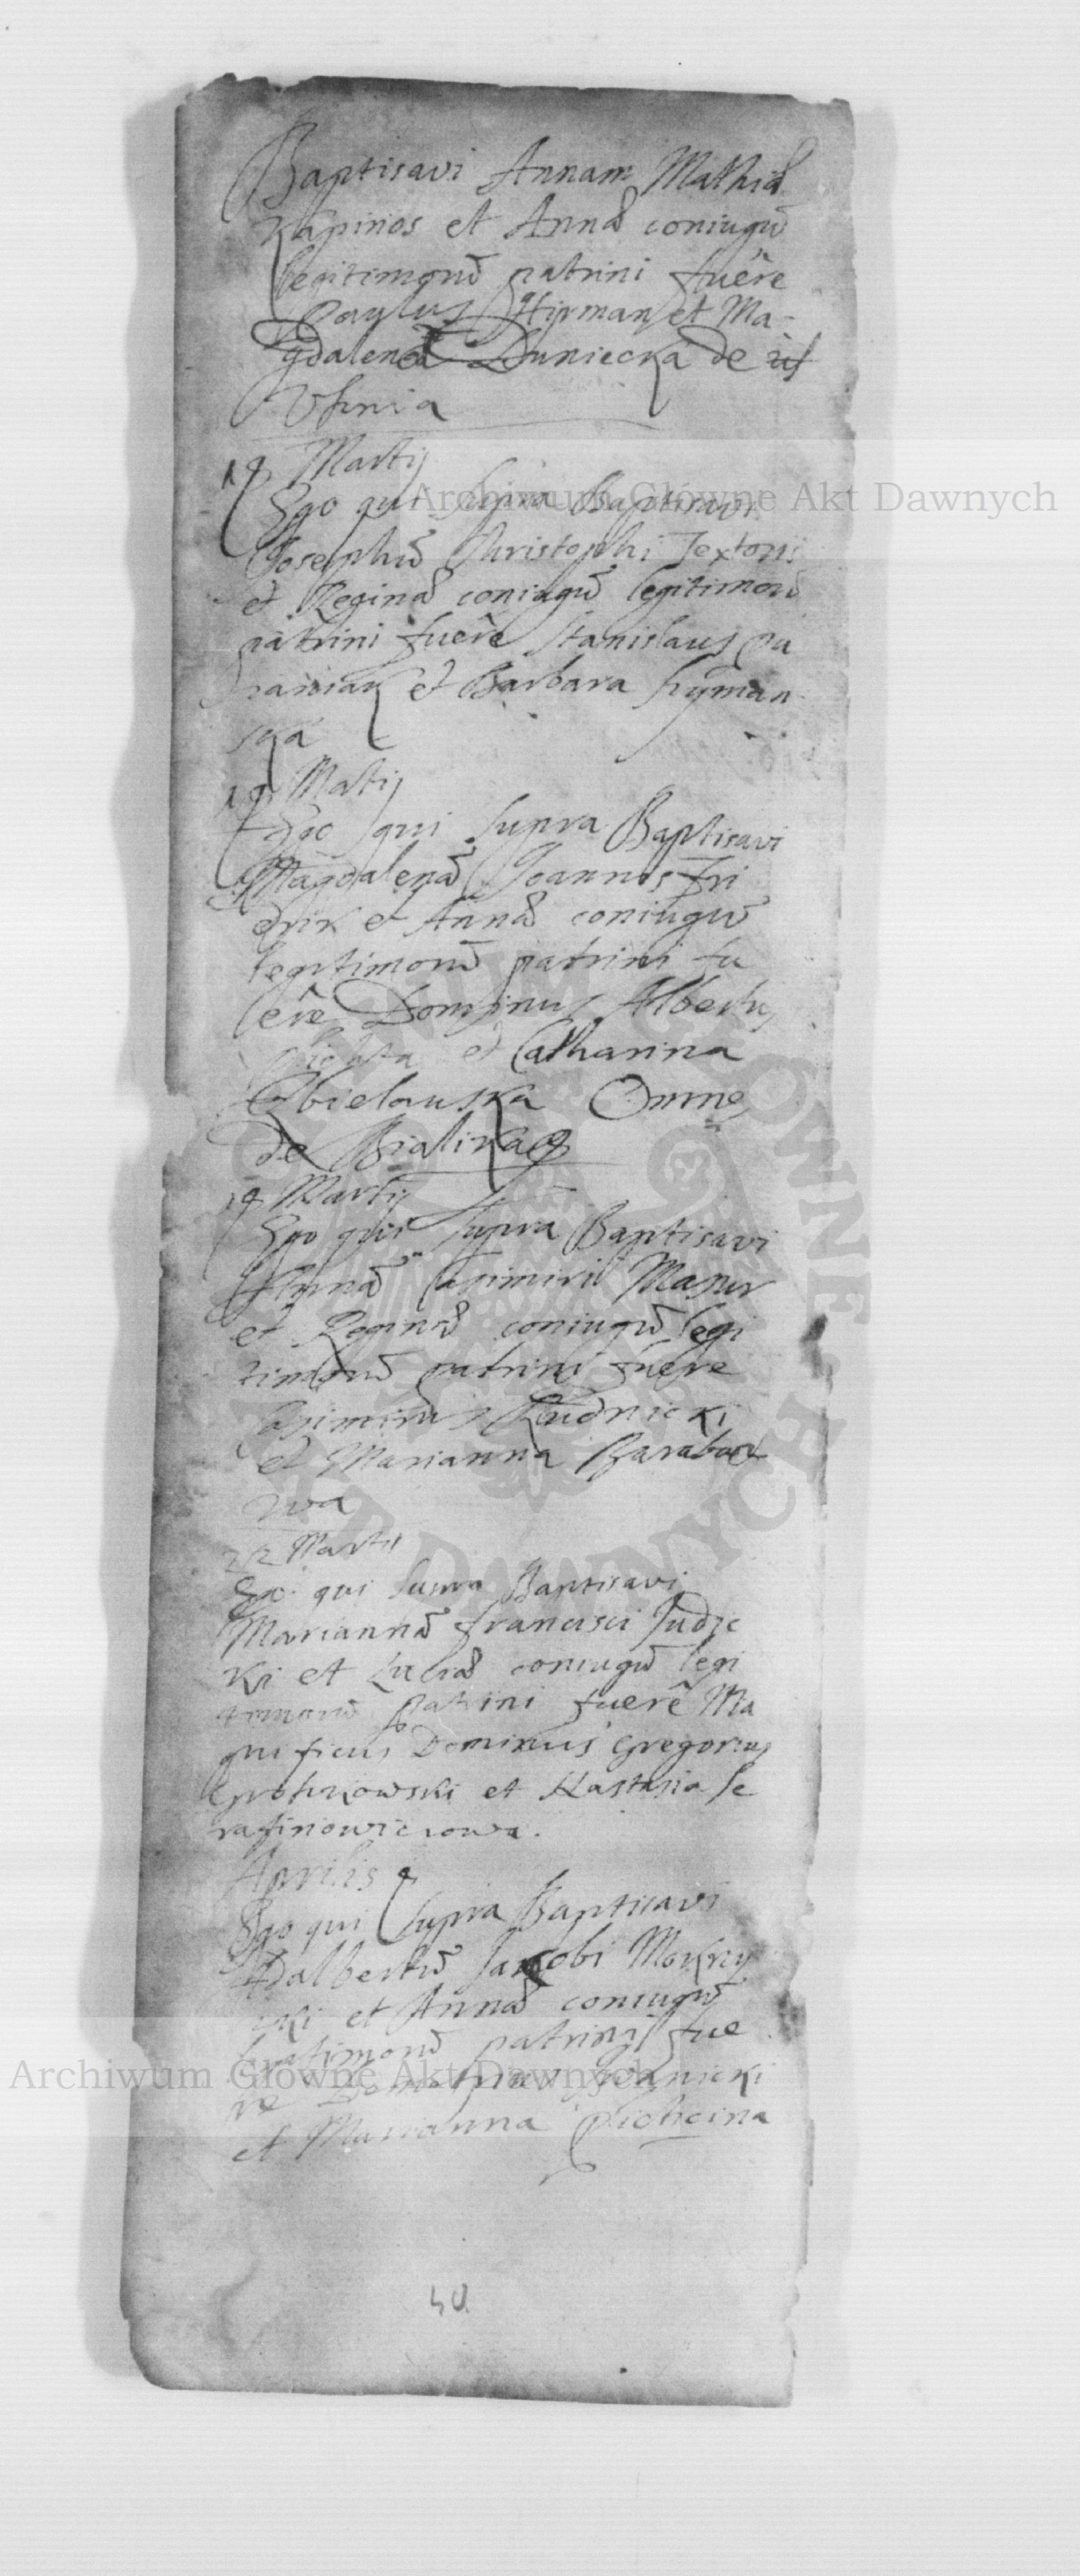 Baptisavi Annam Mathiæ
Kapinos et Annæ coniugū
legitimorū patrini fuêre
Paulus Hipman et Ma-
gdalena Duniecka de
Usnia
19 Martij
Ego qui supra Baptisavi
Josephū Christophi Textoris
et Reginæ coniugū legitimorū
patrini fuêre Stanislaus Pa
et Barbara Szyman
ska
19 Matij
Ego qui supra Baptisavi
Magdalenā Joannis Fri
drik et Annæ coniugū
legitimorū patrini fu
êre Dominus Albertus
et Catharina
Obielauska Omnes
de
19 Martij
Ego qui supra Baptisavi
Annā Casimiri Mazur
et Reginæ coniugū legi
timorū patrini fuere
Casimirus Rudnicki
et Marianna
wa
22 Martii
Ego qui supra Baptisavi
Mariannā Francisci Judic
ki et Luciæ coniugū legi
timorū patrini fuerē Ma
gnificus Dominus Gregorius
et Nastasia Se
rafinowiczowa.
Aprilis 9
Ego qui supra Baptisavi
Adalbertū Jacobi Mokrzy
cki et Annæ coniugū
legitimorū patrini fue
re
et Marianna Pichcina
40
Archiwum Główne Akt Dawnych
Archiwum Główne Akt Dawnych